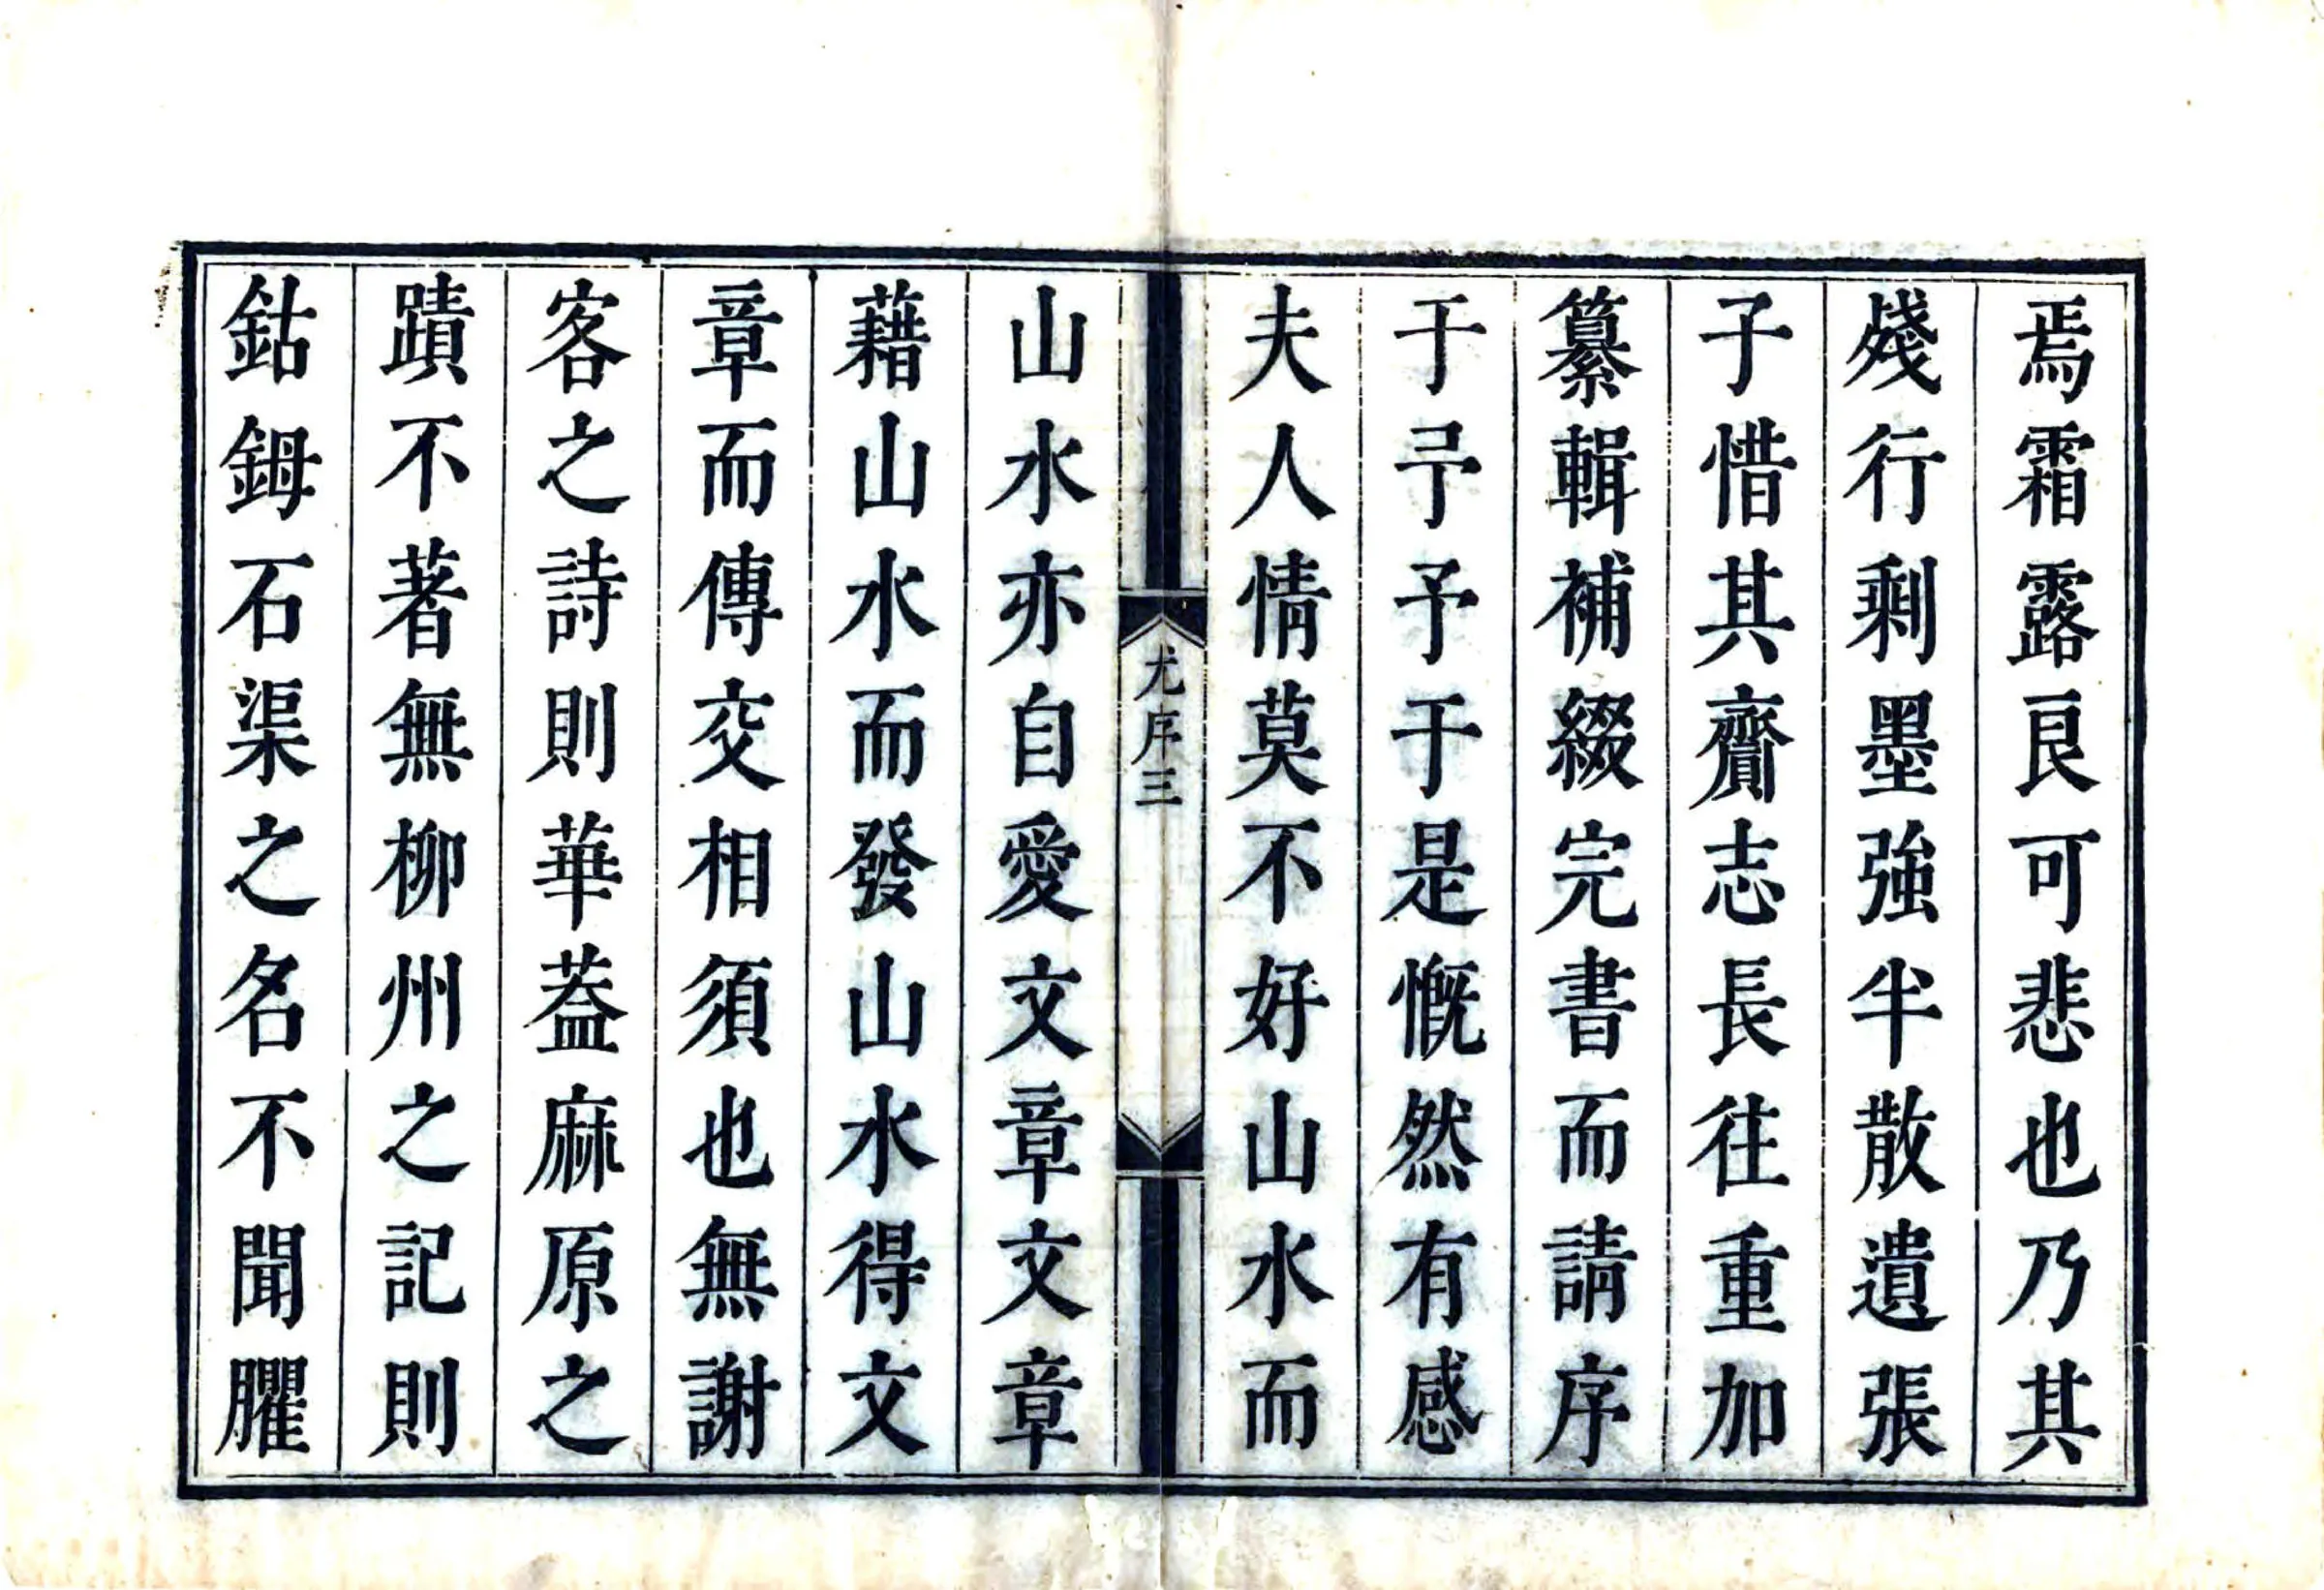 焉霜露良可悲也乃其
殘行剩墨強半散遺張
子惜其齎志長往重加
纂輯補綴完書而請序
于予予于是慨然有感
夫人情莫不好山水而
尤序三
山水亦自愛文章文章
藉山水而發山水得文
章而傳交相須也無謝
客之詩則華葢麻原之
蹟不著無柳州之記則
鈷鉧石渠之名不聞臞